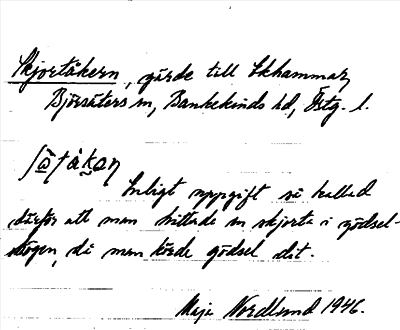 Skjortåkern, gärde till Ekhammar,
Björsäters sn, Bankekinds hd, Östg. l.
Enligt uppgift så kallad
därför att man hittade en skjorta i gödsel-
stugen, då man körde gödsel dit.
Maja Nordlund 1946.